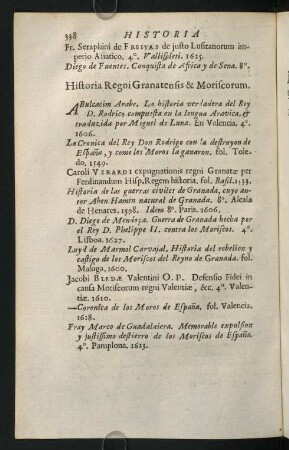 338 HISTORIA
Fr. Seraphini de FREITAS de justo Lusitanorum im-
perio Asiatico, 4°. Vallisoleti. 1625.
Diego de Fuentes. Conquista de Africa y de Sena. 8°.
Historia Regni Granatensis & Moriscorum.
ABulcacim Arabe. La historia verdadera del Rey
D. Rodrico compuesta en la lengua Aravica, &
traduzida por Miguel de Luna. En Valencia. 4°.
1606.
La Cronica del Rey Don Rodrigo con la destruyon de
España, y como los Moros la ganaron. fol. Tole-
do. 1549.
Caroli VERARDI expugnationis regni Granatæ per
Ferdinandum Hisp. Regem historia. fol. Basil. 1533.
Historia de las guerras civiles de Granada, cuyo au-
tor Aben Hamin natural de Granada. 8°. Alcala
de Henares. 1598. Idem 8°. Paris. 1606.
D. Diego de Mendoça. Guerra de Granada hecha por
el Rey D. Phelippe II. contra los Moriscos. 4°.
Lisboa. 1627.
Luys de Marmol Carvajal. Historia del rebelion y
castigo de los Moriscos del Reyno de Granada. fol.
Malaga. 1600.
Jacobi BLEDÆ Valentini O. P. Defensio Fidei in
causa Moriscorum regni Valentiæ, &c. 4°. Valen-
tiæ. 1610.
—Coronica de los Moros de España. fol. Valencia.
1618.
Fray Marco de Guadalaiera. Memorable expulsion
y justissimo destierro de los Moriscos de España.
4°. Pamplona. 1613.